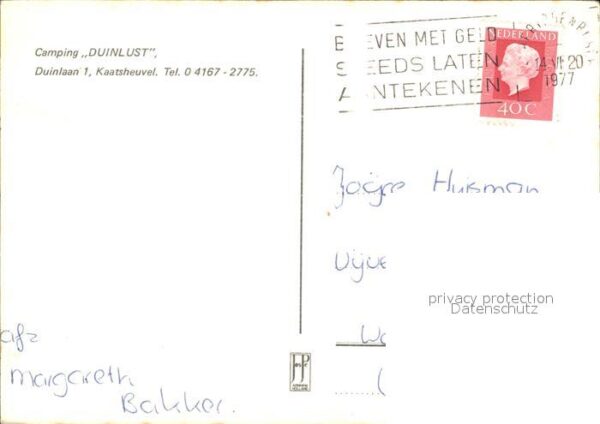 Camping „DUINLUST”,
Duinlaan 1, Kaatsheuvel. Tel. 0 4167 - 2775.
B EVEN MET GELD
S EEDS LATEN
A NTEKENEN
NEDERLAND
40 C
14 VI 20
1977
Huisman
privacy protection
Datenschutz
afz
Margareth
Bakker.